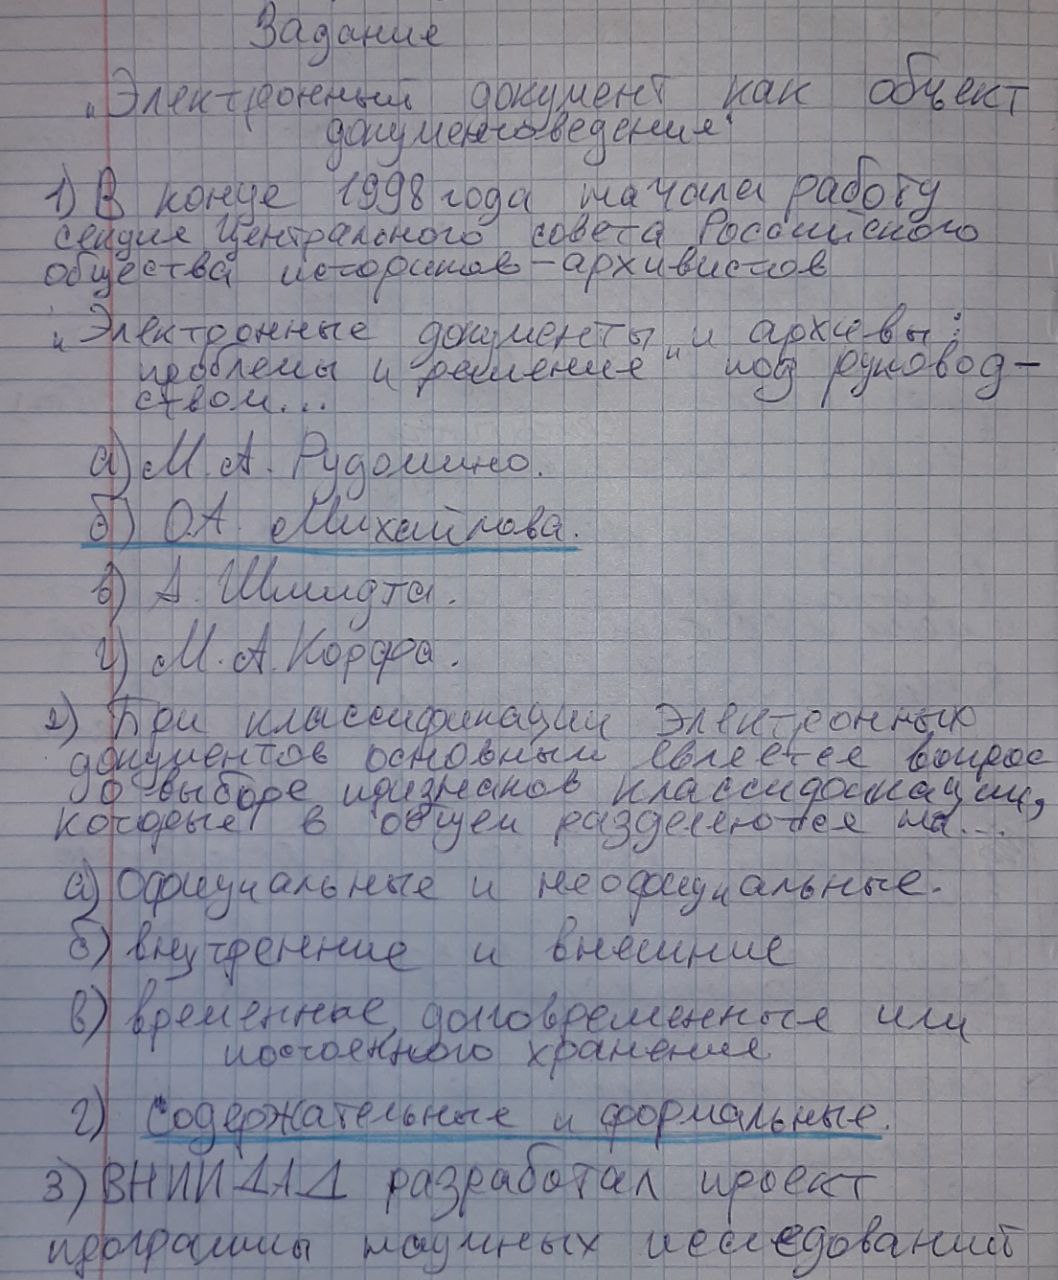 Задание
„Электронный документ как объект
документоведения"
1) В конце 1998 года начала работу
секция Центрального совета Российского
общества историков-архивистов
„Электронные документы и архивы:
проблемы и решение" под руковод-
ством...
а) М.А. Рудомино.
б) О.А. Михайлова.
в) А. Шмидта.
г) М.А. Корфа.
2) При классификации электронных
документов основным является вопрос
о выборе признаков классификации,
которые в общем разделяются на...
а) официальные и неофициальные.
б) внутренние и внешние
в) временные, долговременные или
постоянного хранения
г) Содержательные и формальные.
3) ВНИИДАД разработал проект
программы научных исследований